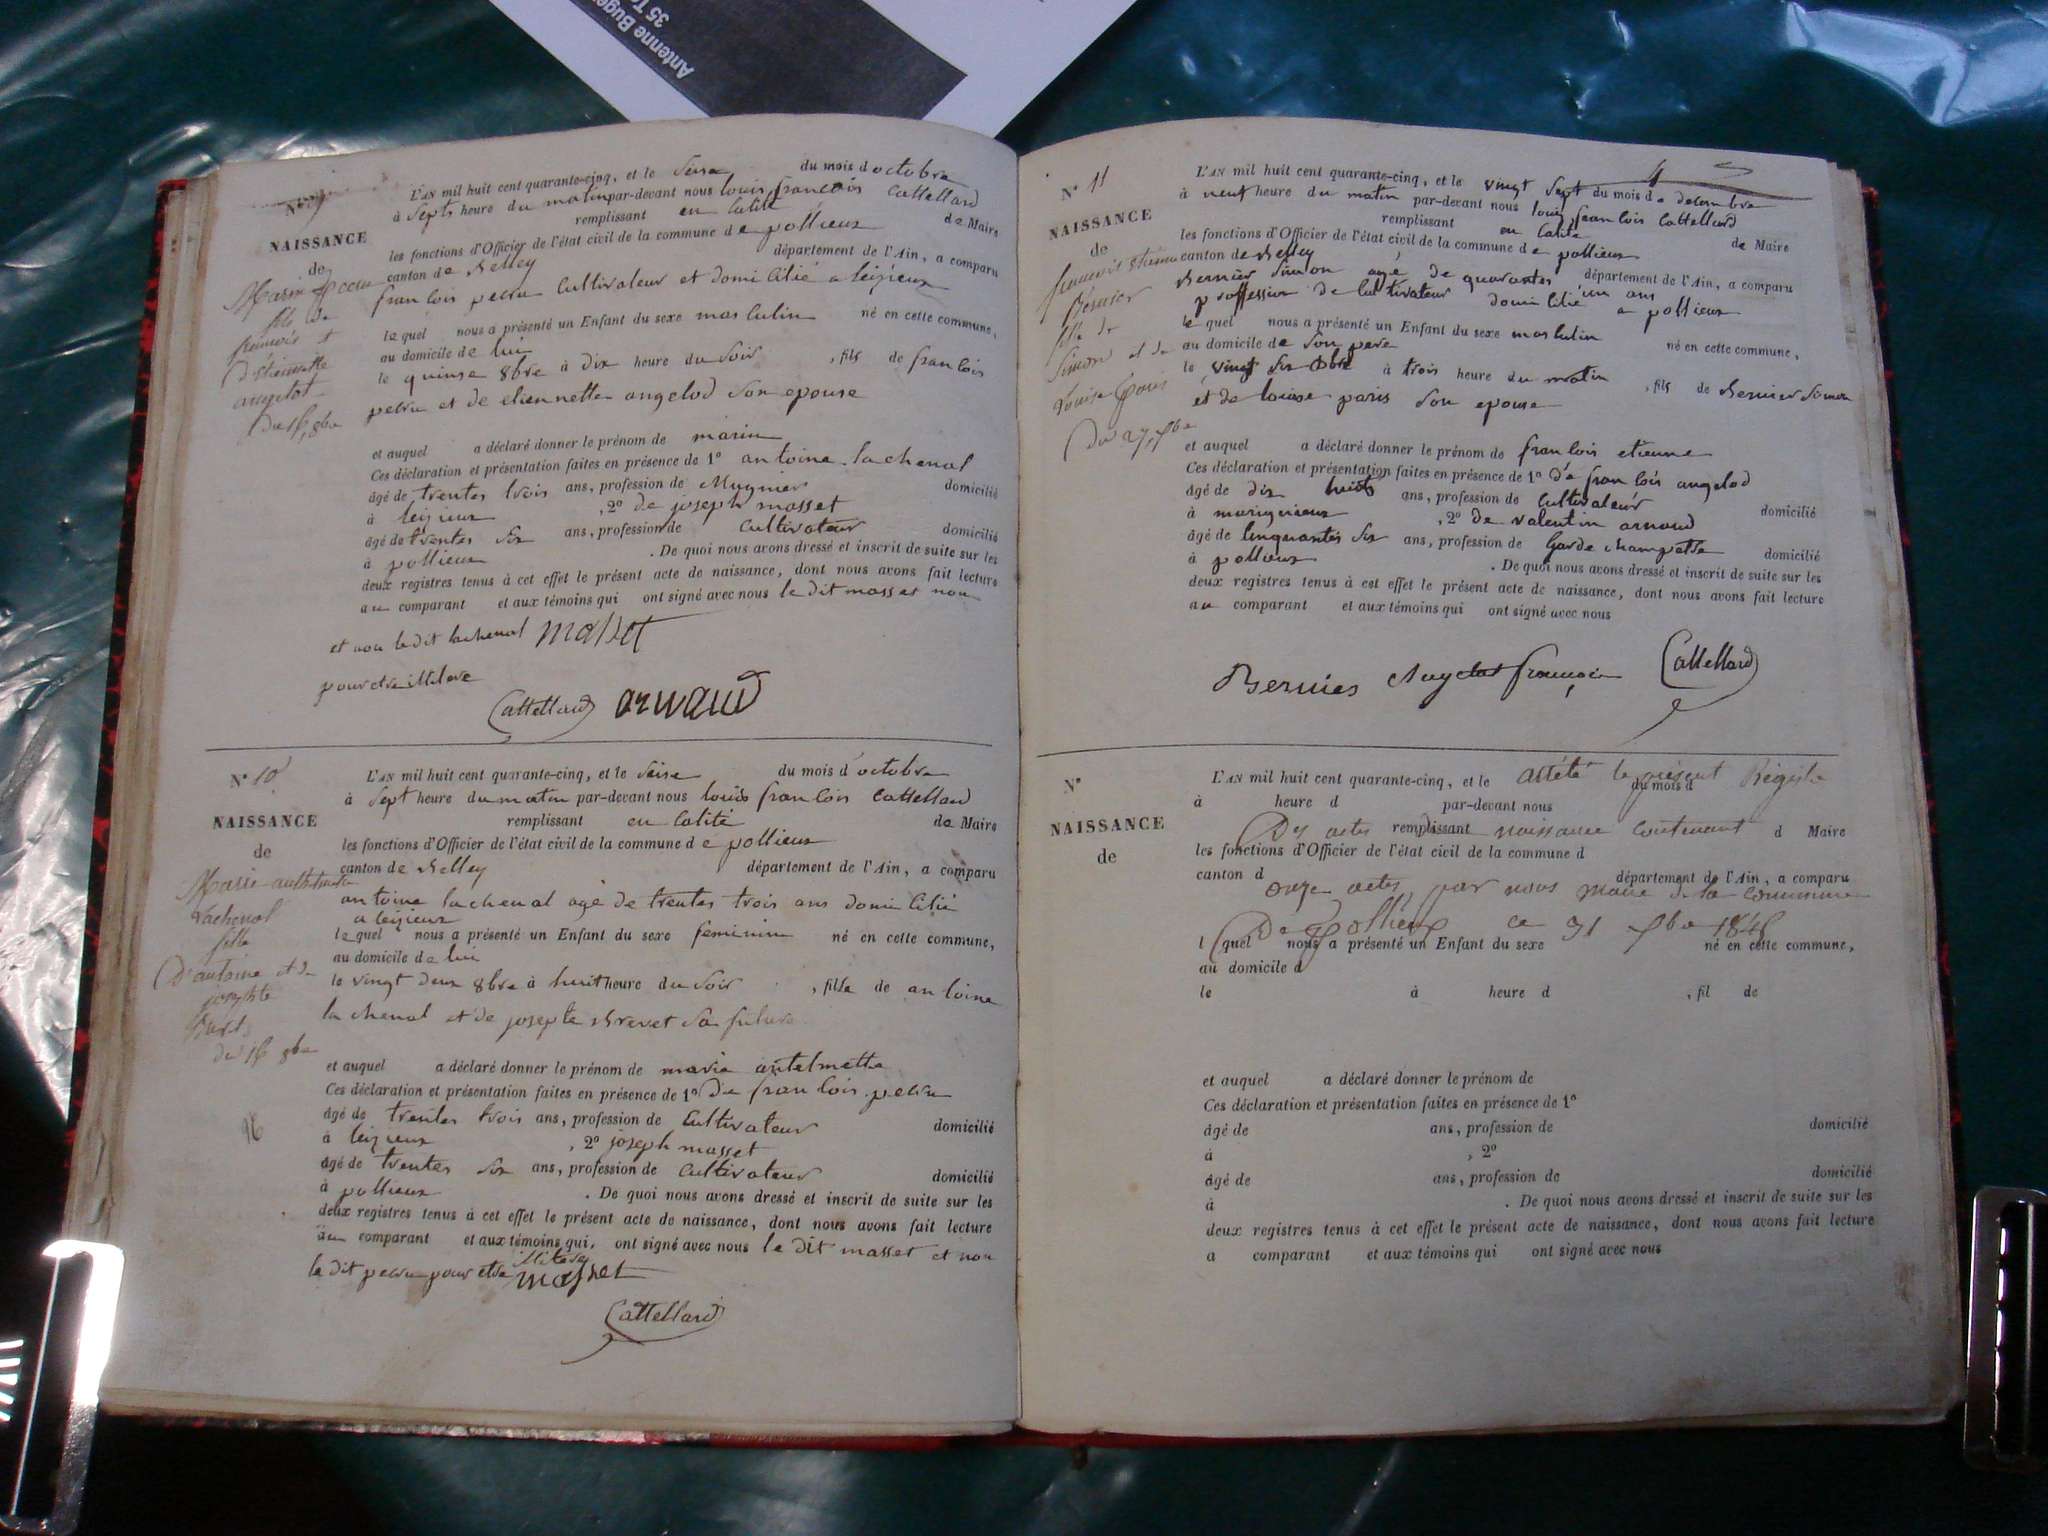 Antenne Buge
35 T
N° 9
NAISSANCE
de
fils de
françois et
angelot
Du 16 8bre
L'AN mil huit cent quarante-cinq, et le seise du mois d octobre
à septs heure du matin par-devant nous louis françois Cattelland
remplissant en Calité de Maire
les fonctions d'Officier de l'état civil de la commune de pollieux
canton de Belley département de l'Ain, a comparu
françois pecru Cultivateur et domicilié a leizieux
le quel nous a présenté un Enfant du sexe masculin né en cette commune,
au domicile de lui
le quinse 8bre à dix heure du soir , fils de françois
pecru et de etiennette angelod son epouse
et auquel a déclaré donner le prénom de marin
Ces déclaration et présentation faites en présence de 1° antoine lachenal
âgé de trentes trois ans, profession de Mugnier domicilié
à leizieux , 2° de joseph masset
âgé de trentes six ans, profession de Cultivateur domicilié
à pollieux . De quoi nous avons dressé et inscrit de suite sur les
deux registres tenus à cet effet le présent acte de naissance, dont nous avons fait lecture
au comparant et aux témoins qui ont signé avec nous le dit masset non
et non le dit lachenal masset
pour etre illitere
Cattelland arnaud
N° 10
NAISSANCE
de
Lachenal
fille
D'antoine et de
josephte
du 16 8bre
96
L'AN mil huit cent quarante-cinq, et le seise du mois d octobre
à sept heure du matin par-devant nous louis françois Cattelland
remplissant en Calité de Maire
les fonctions d'Officier de l'état civil de la commune de pollieux
canton de Belley département de l'Ain, a comparu
antoine lachenal agé de trentes trois ans domicilié
a leizieux
le quel nous a présenté un Enfant du sexe feminin né en cette commune,
au domicile de lui
le vingt deux 8bre à huit heure du soir , fille de antoine
lachenal et de josepte Brevet sa future
et auquel a déclaré donner le prénom de marie antelmette
Ces déclaration et présentation faites en présence de 1° De françois pecru
âgé de trentes trois ans, profession de Cultivateur domicilié
à leizieux , 2° joseph masset
âgé de trentes six ans, profession de Cultivateur domicilié
à pollieux . De quoi nous avons dressé et inscrit de suite sur les
deux registres tenus à cet effet le présent acte de naissance, dont nous avons fait lecture
au comparant et aux témoins qui, ont signé avec nous le dit masset et non
le dit pecru pour etre illitere masset
Cattelland
N° 11
NAISSANCE
de
françois étienne
Bernier
fils de
Simon et de
Louise Paris
Du 27 Xbre
L'AN mil huit cent quarante-cinq, et le vingt sept du mois de decembre
à neuf heure du matin par-devant nous louis françois Cattelland
remplissant en Calité de Maire
les fonctions d'Officier de l'état civil de la commune de pollieux
canton de Belley département de l'Ain, a comparu
Bernier simon agé de quarantes un ans
proffession de Cultivateur domicilié a pollieux
le quel nous a présenté un Enfant du sexe masculin né en cette commune,
au domicile de son pere
le vingt six Xbre à trois heure du matin , fils de Bernier simon
et de louise paris son epouse
et auquel a déclaré donner le prénom de françois etienne
Ces déclaration et présentation faites en présence de 1° de françois angelod
âgé de dix huits ans, profession de Cultivateur domicilié
à marignieux , 2° de valentin arnaud
âgé de Cinquantes six ans, profession de Garde champetre domicilié
à pollieux . De quoi nous avons dressé et inscrit de suite sur les
deux registres tenus à cet effet le présent acte de naissance, dont nous avons fait lecture
au comparant et aux témoins qui ont signé avec nous
Bernier Angelot françois Cattelland
N°
NAISSANCE
de
L'AN mil huit cent quarante-cinq, et le du mois d
arrêté le présent Régistre
à heure d par-devant nous
remplissant d Maire
Des actes de naissance contenant
les fonctions d'Officier de l'état civil de la commune d
canton d département de l'Ain, a comparu
onze actes, par nous maire de la commune
De Pollieux ce 31 Xbre 1845
l quel nous a présenté un Enfant du sexe né en cette commune,
au domicile d
le à heure d , fil de
et auquel a déclaré donner le prénom de
Ces déclaration et présentation faites en présence de 1°
âgé de ans, profession de domicilié
à , 2°
âgé de ans, profession de domicilié
à . De quoi nous avons dressé et inscrit de suite sur les
deux registres tenus à cet effet le présent acte de naissance, dont nous avons fait lecture
a comparant et aux témoins qui ont signé avec nous